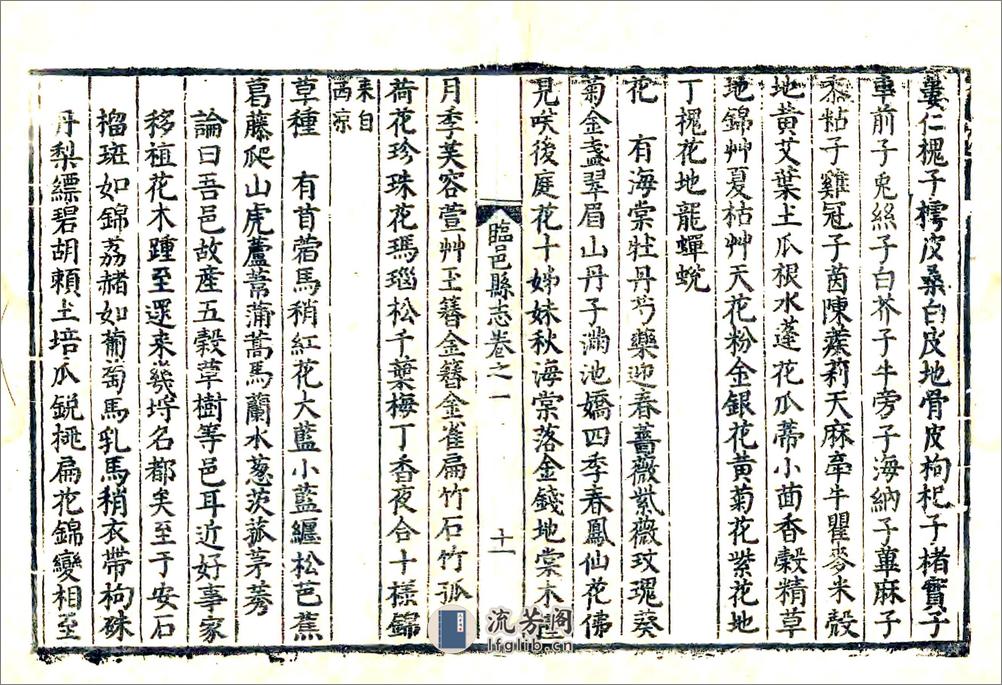 蔞仁槐子樗皮桑白皮地骨皮枸杞子楮實子
車前子兎絲子白芥子牛旁子海納子萆麻子
黍粘子雞冠子茵陳蒺莉天麻牽牛瞿麥米殼
地黃艾葉土瓜根水蓬花瓜蒂小茴香穀精草
地錦艸夏枯艸天花粉金銀花黃菊花紫花地
丁槐花地龍蟬蛻
花 有海棠牡丹芍藥迎春薔薇紫薇玫瑰葵
菊金盞翠眉山丹子滿池嬌四季春鳳仙花佛
見咲後庭花十姊妹秋海棠落金錢地棠木
臨邑縣志卷之一 十一
月季芙容萱艸玉簪金簪金雀扁竹石竹孤
荷花珍珠花瑪瑙松千葉梅丁香夜合十樣錦
來自西凉
草種 有苜蓿馬稍紅花大藍小藍纒松芭蕉
葛藤爬山虎蘆葦蒲蒿馬蘭水葱茨菰茅莠
論曰吾邑故産五穀草樹等邑耳近好事家
移祖花木踵至遝來幾埒名都矣至于安石
榴斑如錦荔赭如葡萄馬乳馬稍衣帶枸硃
丹梨縹碧胡賴土培瓜鋭挑扁花錦變相至
流芳阁
lfglib.cn